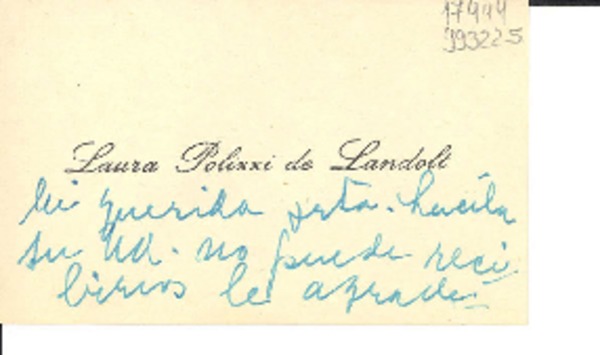 17944
993225
Laura Polizzi de Landolt
Mi querida srta. Lucila
su Ud. no puede reci-
birnos le agrade-